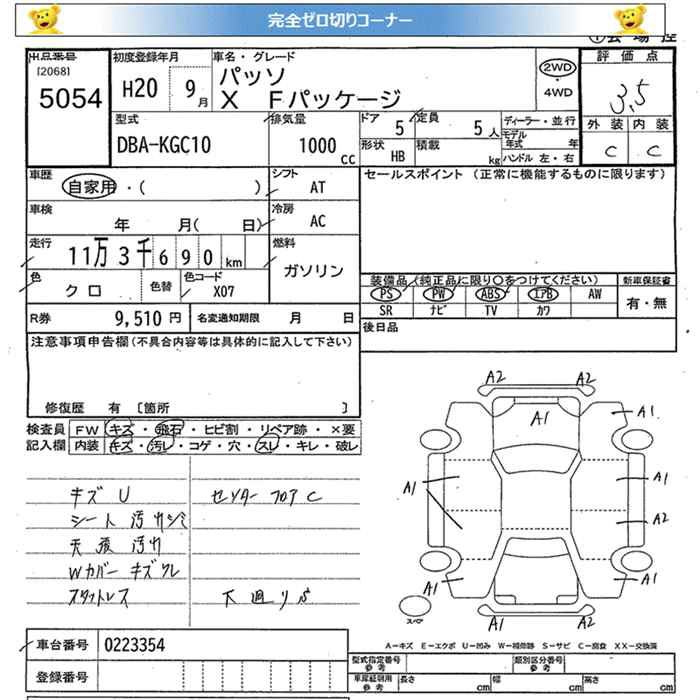 完全ゼロ切りコーナー
出品番号
[2068]
5054
初度登録年月
H20 9月
車名・グレード
パッソ
X Fパッケージ
2WD
・
4WD
評価点
3.5
外装 内装
C C
型式
DBA-KGC10
排気量
1000 CC
ドア 5
定員 5人
形状 HB
積載 kg
ディーラー・並行
モデル年式 年
ハンドル 左・右
車歴
自家用・( )
シフト
AT
車検
年 月( 日)
冷房
AC
走行
11万3千690km
燃料
ガソリン
色
クロ
色替
色コード
X07
セールスポイント (正常に機能するものに限ります)
装備品(純正品に限り○をつけてください)
PS PW ABS エアB AW
SR ナビ TV カワ
新車保証書
有・無
R券 9,510円
名変通知期限 月 日
後日品
注意事項申告欄(不具合内容等は具体的に記入して下さい)
修復歴 有 [箇所 ]
検査員記入欄
FW キズ・飛石・ヒビ割・リペア跡・×要
内装 キズ・汚レ・コゲ・穴・スレ・キレ・破レ
キズ U
シート 汚れシミ
天張 汚れ
Wカバー キズワレ
スタットレス
センターフロアC
下廻りS
A2 A2
A1 A1
A1 A1
A2
A1 A1
A2 A2
スペア
A-キズ E-エクボ U-凹み W-補修跡 S-サビ C-腐食 XX-交換済
車台番号 0223354
登録番号
型式指定番号 参考
類別区分番号 参考
車庫証明用 参考
長さ cm
幅 cm
高さ cm